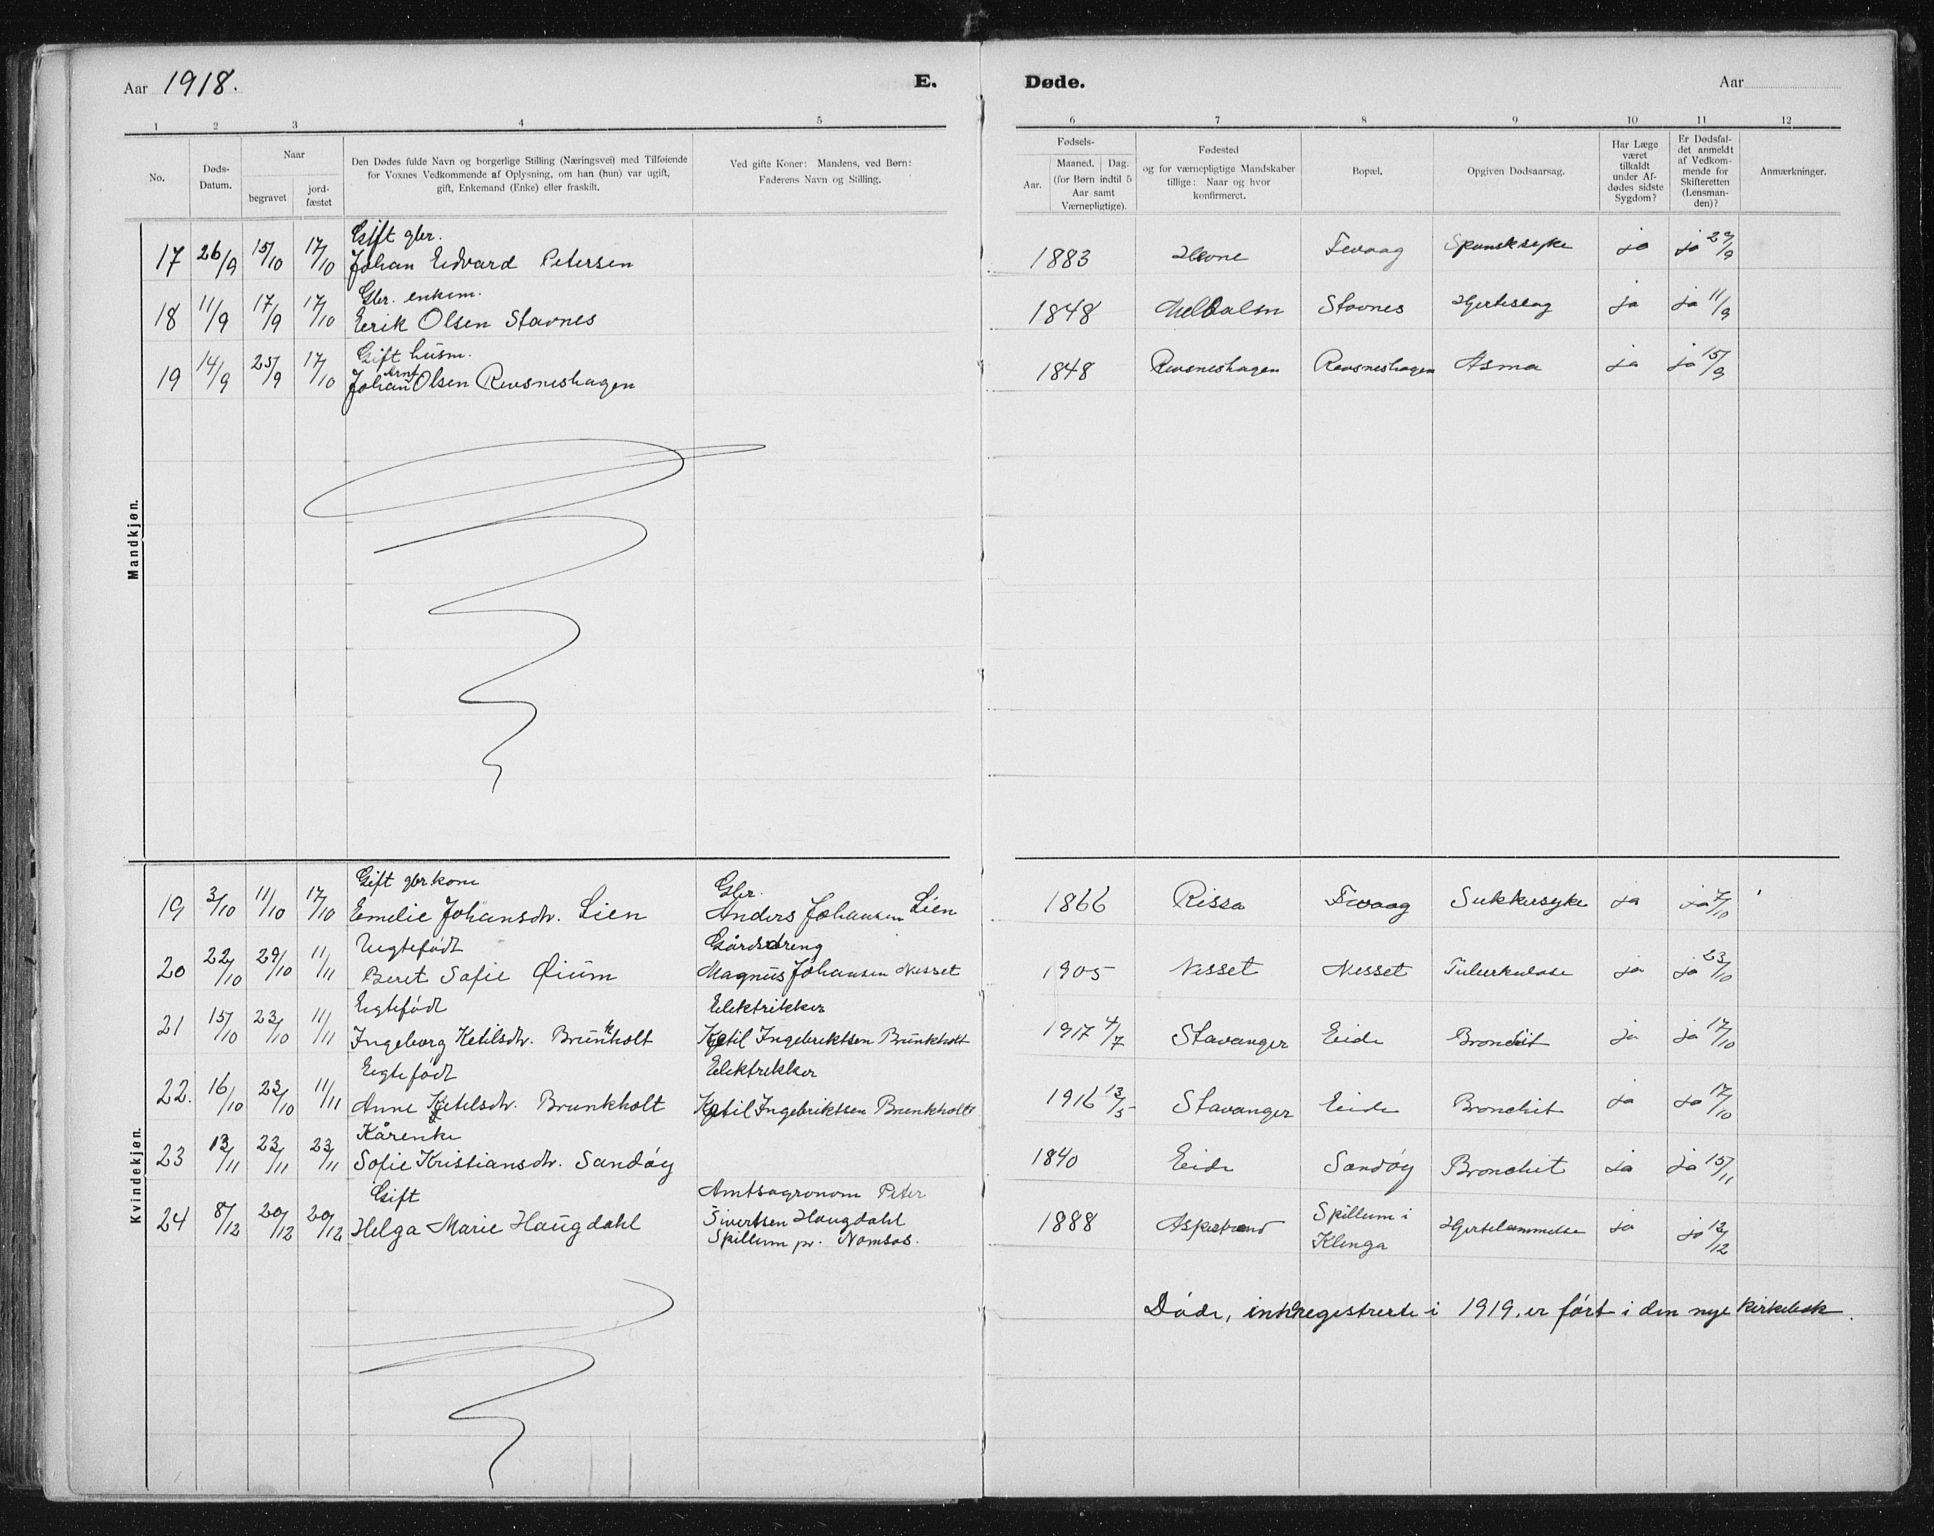 Aar 1918.
E.
Døde.
Aar
1 2 3 4 5 6 7 8 9 10 11 12
No.
Døds-
Datum.
Naar
begravet
jord-
fæstet
Den Dødes fulde Navn og borgerlige Stilling (Næringsvei) med Tilføiende
for Voxnes Vedkommende af Oplysning, om han (hun) var ugift,
gift, Enkemand (Enke) eller fraskilt.
Ved gifte Koner: Mandens, ved Børn:
Faderens Navn og Stilling.
Fødsels-
Aar.
Maaned. Dag.
(for Børn indtil 5
Aar samt
Værnepligtige).
Fødested
og for værnepligtige Mandskaber
tillige: Naar og hvor
konfirmeret.
Bopæl.
Opgiven Dødsaarsag.
Har Læge
været
tilkaldt
under Af-
dødes sidste
Sygdom?
Er Dødsfal-
det anmeldt
af Vedkom-
mende for
Skifteretten
(Lensman-
den)?
Anmærkninger.
Mandkjøn.
Gift gbr.
17 26/9 15/10 17/10 Johan Edvard Petersen 1883 Hevne Fevaag Spansksyke ja ja 29/9
Gbr. enkem.
18 11/9 17/9 17/10 Eerik Olsen Stavnes 1848 Stavnes Hjerteslag ja ja 11/9
Gift husm.
Arnt
19 14/9 25/9 17/10 Johan Olsen Revsneshagen 1848 Revsneshagen Revsneshagen Asma ja ja 15/9
Kvindekjøn.
Gift gbrkone Gbr.
19 3/10 11/10 17/10 Emelie Johansdtr. Lien Anders Johansen Lien 1866 Rissa Fevaag Sukkersyke ja ja 7/10
Uegtefødt Gårdsdreng
20 22/10 29/10 11/11 Beret Sofie Øium Magnus Johansen Nesset 1905 Nesset Nesset Tuberkulose ja ja 23/10
Egtefødt Elektrikker
21 15/10 23/10 11/11 Ingeborg Ketilsdtr. Brunkholt Kjetil Ingebriktsen Brunkholt 1917 4/7 Stavanger Eide Bronchit ja ja 17/10
Egtefødt Elektrikker
22. 16/10 23/10 11/11 Anne Kjetilsdtr. Brunkholt Kjetil Ingebriktsen Brunkholt 1916 13/5 Stavanger Eide Bronchit ja ja 17/10
Kårenke
23 13/11 23/11 23/11 Sofie Kristiansdtr. Sandøy 1840 Eide Sandøy Bronchit ja ja 15/11
Gift Amtsagronom Peter
24 8/12 20/12 20/12 Helga Marie Haugdahl Sivertsen Haugdahl 1888 Askestrand Spillum i Hjertelammelse ja ja 13/12
Spillum pr. Namsos. Klinga
Døde, indregistrerte i 1919, er ført i den nye kirkebok.